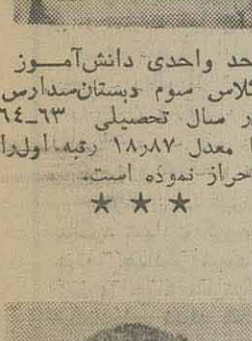 حد واحدی دانش‌آمــوز
کلاس سوم دبستان‌سدارس
ر سال تحصیلی ۶۳ــ۶۴
ا معدل ۱۸٫۸۷ رتبه اول‌را
حراز نموده است.
★ ★ ★